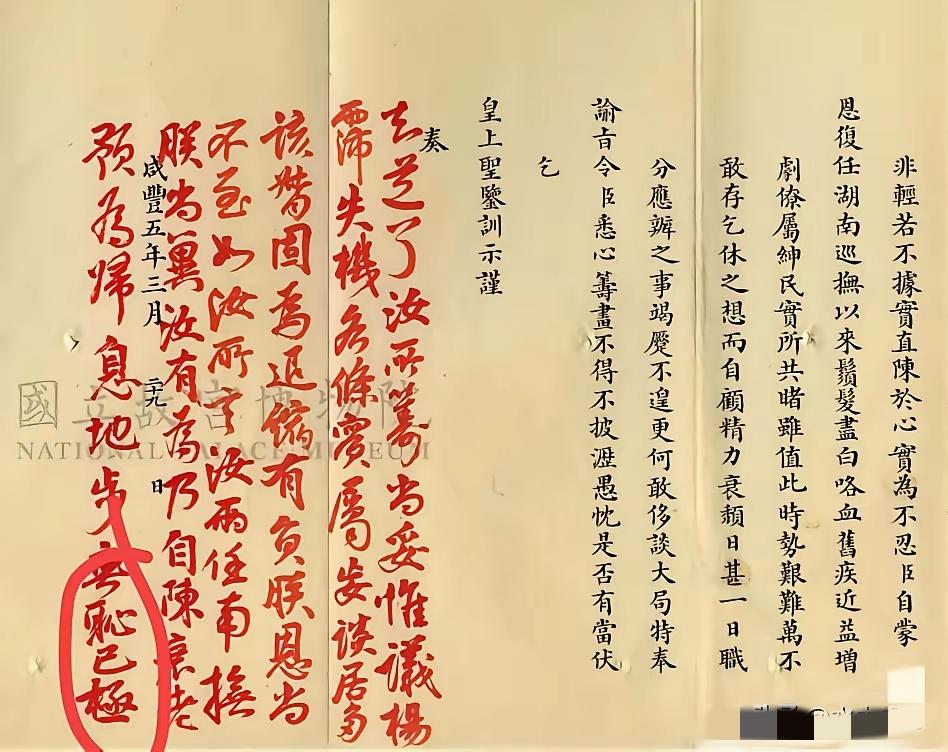 非輕若不據實直陳於心實為不忍臣自蒙
恩復任湖南巡撫以來鬚髮盡白咯血舊疾近益增
劇僚屬紳民實所共睹雖值此時勢艱難萬不
敢存乞休之想而自顧精力衰頹日甚一日職
分應辦之事竭蹷不遑更何敢侈談大局特奉
諭旨令臣悉心籌畫不得不披瀝愚忱是否有當伏
乞
皇上聖鑒訓示謹
奏
知道了汝所籌尚妥惟議楊
霈失機各條實屬妄談居多
該督固為退縮有負朕恩尚
不至如汝所言汝兩任南撫
朕尚冀汝有為乃自陳衰老
咸豐五年三月二十九日
預為歸息地步無恥已極
國立故宮博物院
NATIONAL PALACE MUSEUM